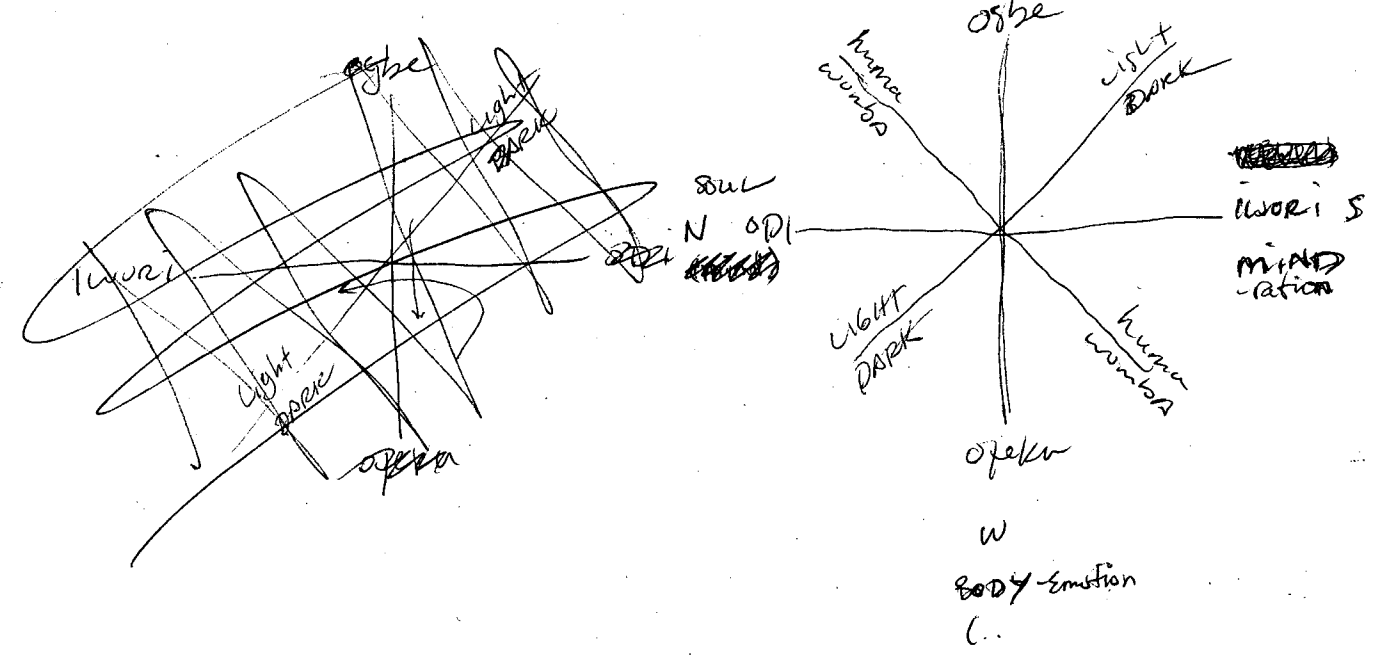 ogbe
Light
DARK
Iwori
ODI
Light
DARK
opeku
ogbe
huma
womba
light
DARK
soul
N ODI
iwori S
MIND
-ration
LIGHT
DARK
huma
womba
opeku
W
BODY-Emotion
(..